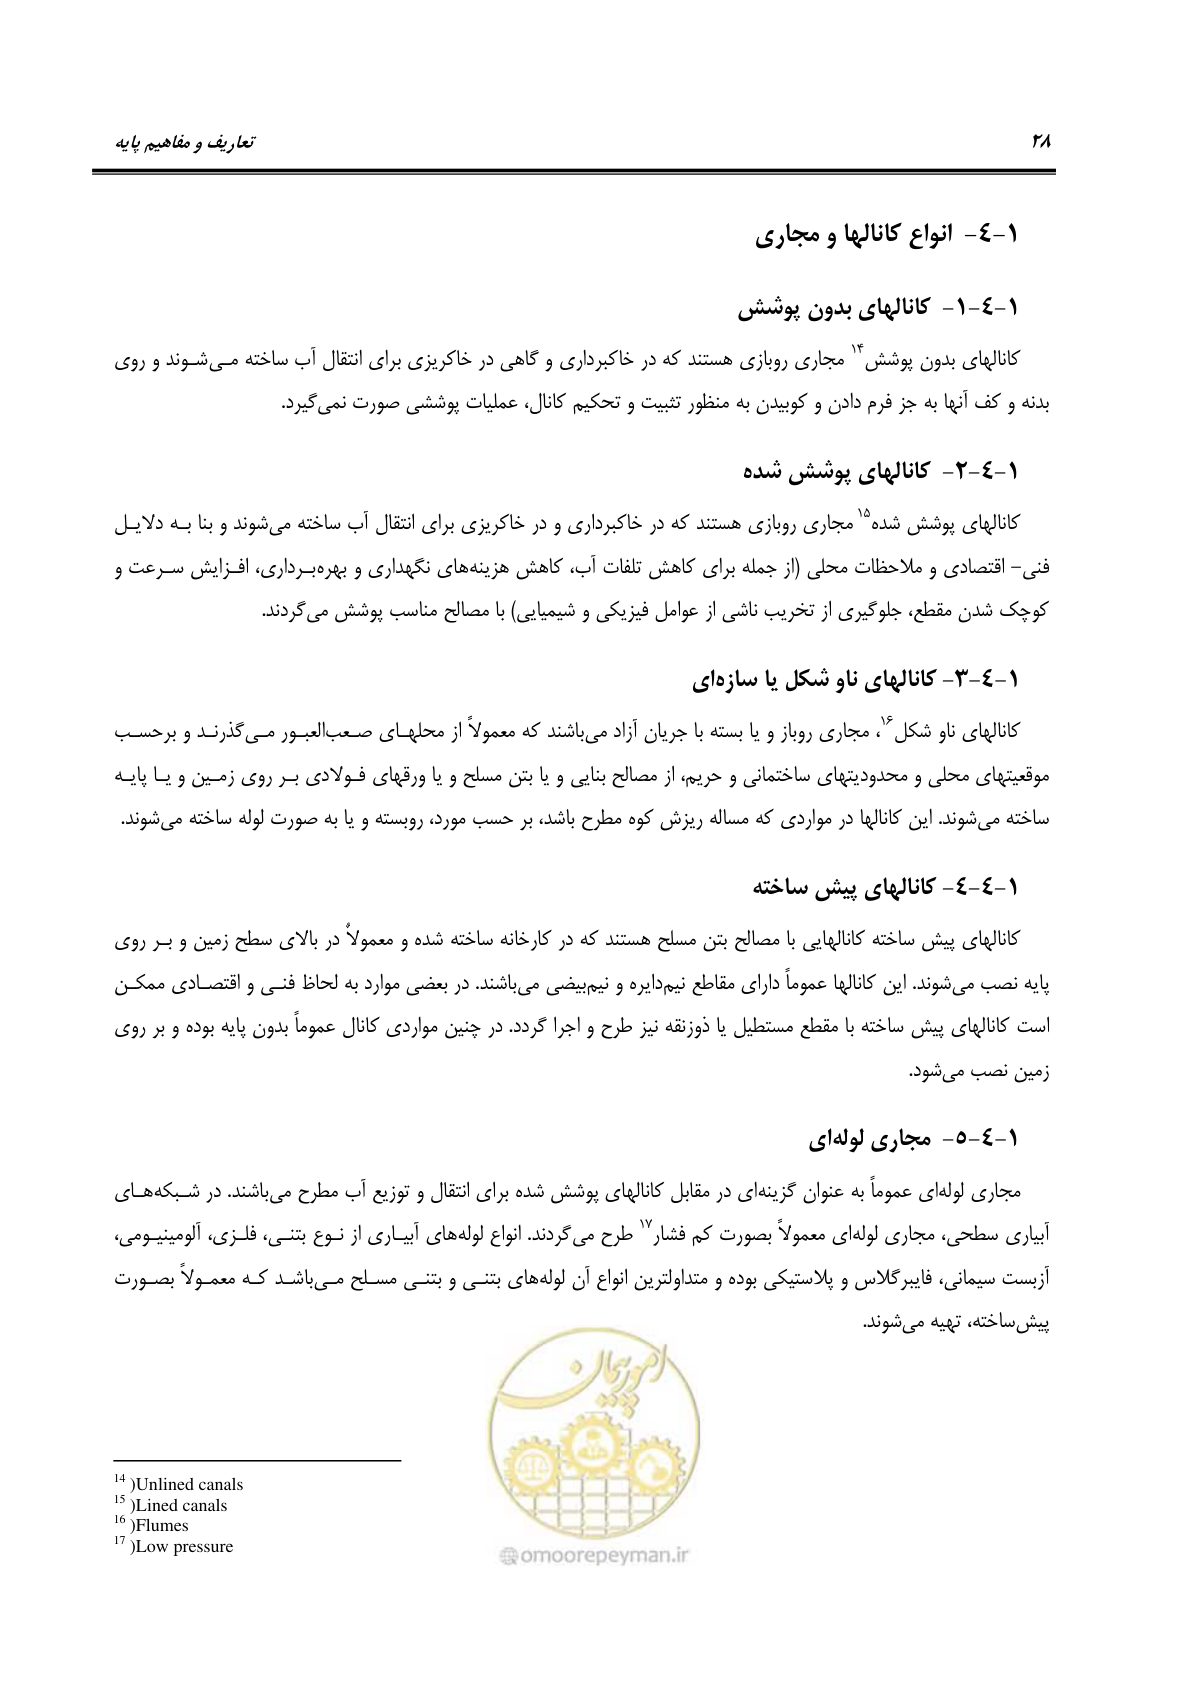 ۲۸
تعاریف و مفاهیم پایه
۱-٤- انواع کانالها و مجاری
۱-٤-۱- کانالهای بدون پوشش
کانالهای بدون پوشش۱۴ مجاری روبازی هستند که در خاکبرداری و گاهی در خاکریزی برای انتقال آب ساخته مـی‌شـوند و روی
بدنه و کف آنها به جز فرم دادن و کوبیدن به منظور تثبیت و تحکیم کانال، عملیات پوششی صورت نمی‌گیرد.
۱-٤-۲- کانالهای پوشش شده
کانالهای پوشش شده۱۵ مجاری روبازی هستند که در خاکبرداری و در خاکریزی برای انتقال آب ساخته می‌شوند و بنا بـه دلایـل
فنی- اقتصادی و ملاحظات محلی (از جمله برای کاهش تلفات آب، کاهش هزینه‌های نگهداری و بهره‌بـرداری، افـزایش سـرعت و
کوچک شدن مقطع، جلوگیری از تخریب ناشی از عوامل فیزیکی و شیمیایی) با مصالح مناسب پوشش می‌گردند.
۱-٤-۳- کانالهای ناو شکل یا سازه‌ای
کانالهای ناو شکل۱۶، مجاری روباز و یا بسته با جریان آزاد می‌باشند که معمولاً از محلهـای صـعب‌العبـور مـی‌گذرنـد و برحسـب
موقعیتهای محلی و محدودیتهای ساختمانی و حریم، از مصالح بنایی و یا بتن مسلح و یا ورقهای فـولادی بـر روی زمـین و یـا پایـه
ساخته می‌شوند. این کانالها در مواردی که مساله ریزش کوه مطرح باشد، بر حسب مورد، روبسته و یا به صورت لوله ساخته می‌شوند.
۱-٤-٤- کانالهای پیش ساخته
کانالهای پیش ساخته کانالهایی با مصالح بتن مسلح هستند که در کارخانه ساخته شده و معمولاً در بالای سطح زمین و بـر روی
پایه نصب می‌شوند. این کانالها عموماً دارای مقاطع نیم‌دایره و نیم‌بیضی می‌باشند. در بعضی موارد به لحاظ فنـی و اقتصـادی ممکـن
است کانالهای پیش ساخته با مقطع مستطیل یا ذوزنقه نیز طرح و اجرا گردد. در چنین مواردی کانال عموماً بدون پایه بوده و بر روی
زمین نصب می‌شود.
۱-٤-٥- مجاری لوله‌ای
مجاری لوله‌ای عموماً به عنوان گزینه‌ای در مقابل کانالهای پوشش شده برای انتقال و توزیع آب مطرح می‌باشند. در شـبکه‌هـای
آبیاری سطحی، مجاری لوله‌ای معمولاً بصورت کم فشار۱۷ طرح می‌گردند. انواع لوله‌های آبیـاری از نـوع بتنـی، فلـزی، آلومینیـومی،
آزبست سیمانی، فایبرگلاس و پلاستیکی بوده و متداولترین انواع آن لوله‌های بتنـی و بتنـی مسـلح مـی‌باشـد کـه معمـولاً بصـورت
پیش‌ساخته، تهیه می‌شوند.
امور پیمان
14 )Unlined canals
15 )Lined canals
16 )Flumes
17 )Low pressure
omoorepeyman.ir